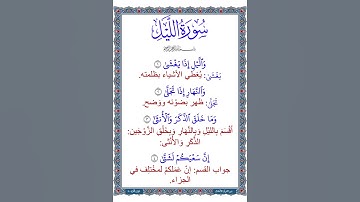 سُورَةُ اللَّيْلِ
وَٱلَّيْلِ إِذَا يَغْشَىٰ ١
يَغْشَىٰ: يُغَطِّي الأشياء بظلمته.
وَٱلنَّهَارِ إِذَا تَجَلَّىٰ ٢
تَجَلَّىٰ: ظهر بضوئه ووضح.
وَمَا خَلَقَ ٱلذَّكَرَ وَٱلْأُنثَىٰ ٣
أقْسَمَ بِاللَّيْلِ وَبِالنَّهَارِ وبِخَلْقِ الزَّوْجَيْنِ:
الذَّكَرِ وَالأُنْثَى:
إِنَّ سَعْيَكُمْ لَشَتَّىٰ ٤
جواب القسم: إنّ عَمَلَكُمْ لمختَلف في
الجزاء.